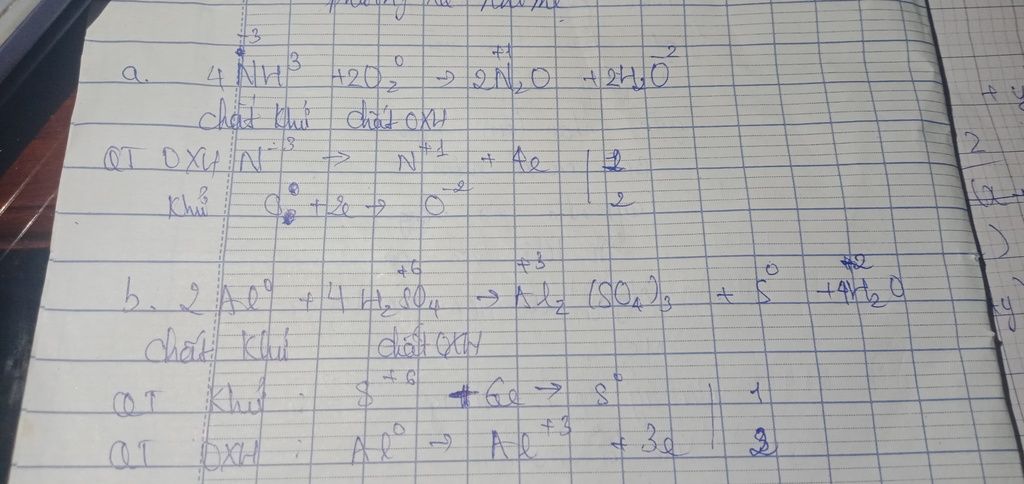 +3
a. 4NH³ + 2O₂⁰ → 2N₂⁺¹O + 2H₂O⁻²
chất khử chất OXH
QT OXH N⁻³ → N⁺¹ + 4e | 1
khử O₂⁰ + 2e → O⁻² | 2
b. 2Al⁰ + 4H₂S⁺⁶O₄ → Al₂⁺³(SO₄)₃ + S⁰ + 4H₂O
chất khử chất OXH
QT khử : S⁺⁶ + 6e → S⁰ | 1
QT OXH : Al⁰ → Al⁺³ + 3e | 2